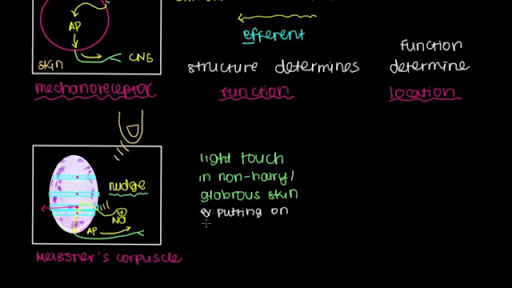 AP
CNS
skin
mechanoreceptor
Efferent
structure determines
function
function
determine
location
nudge
Na
AP
Meissner's corpuscle
light touch
in non-hairy/
glabrous skin
putting on